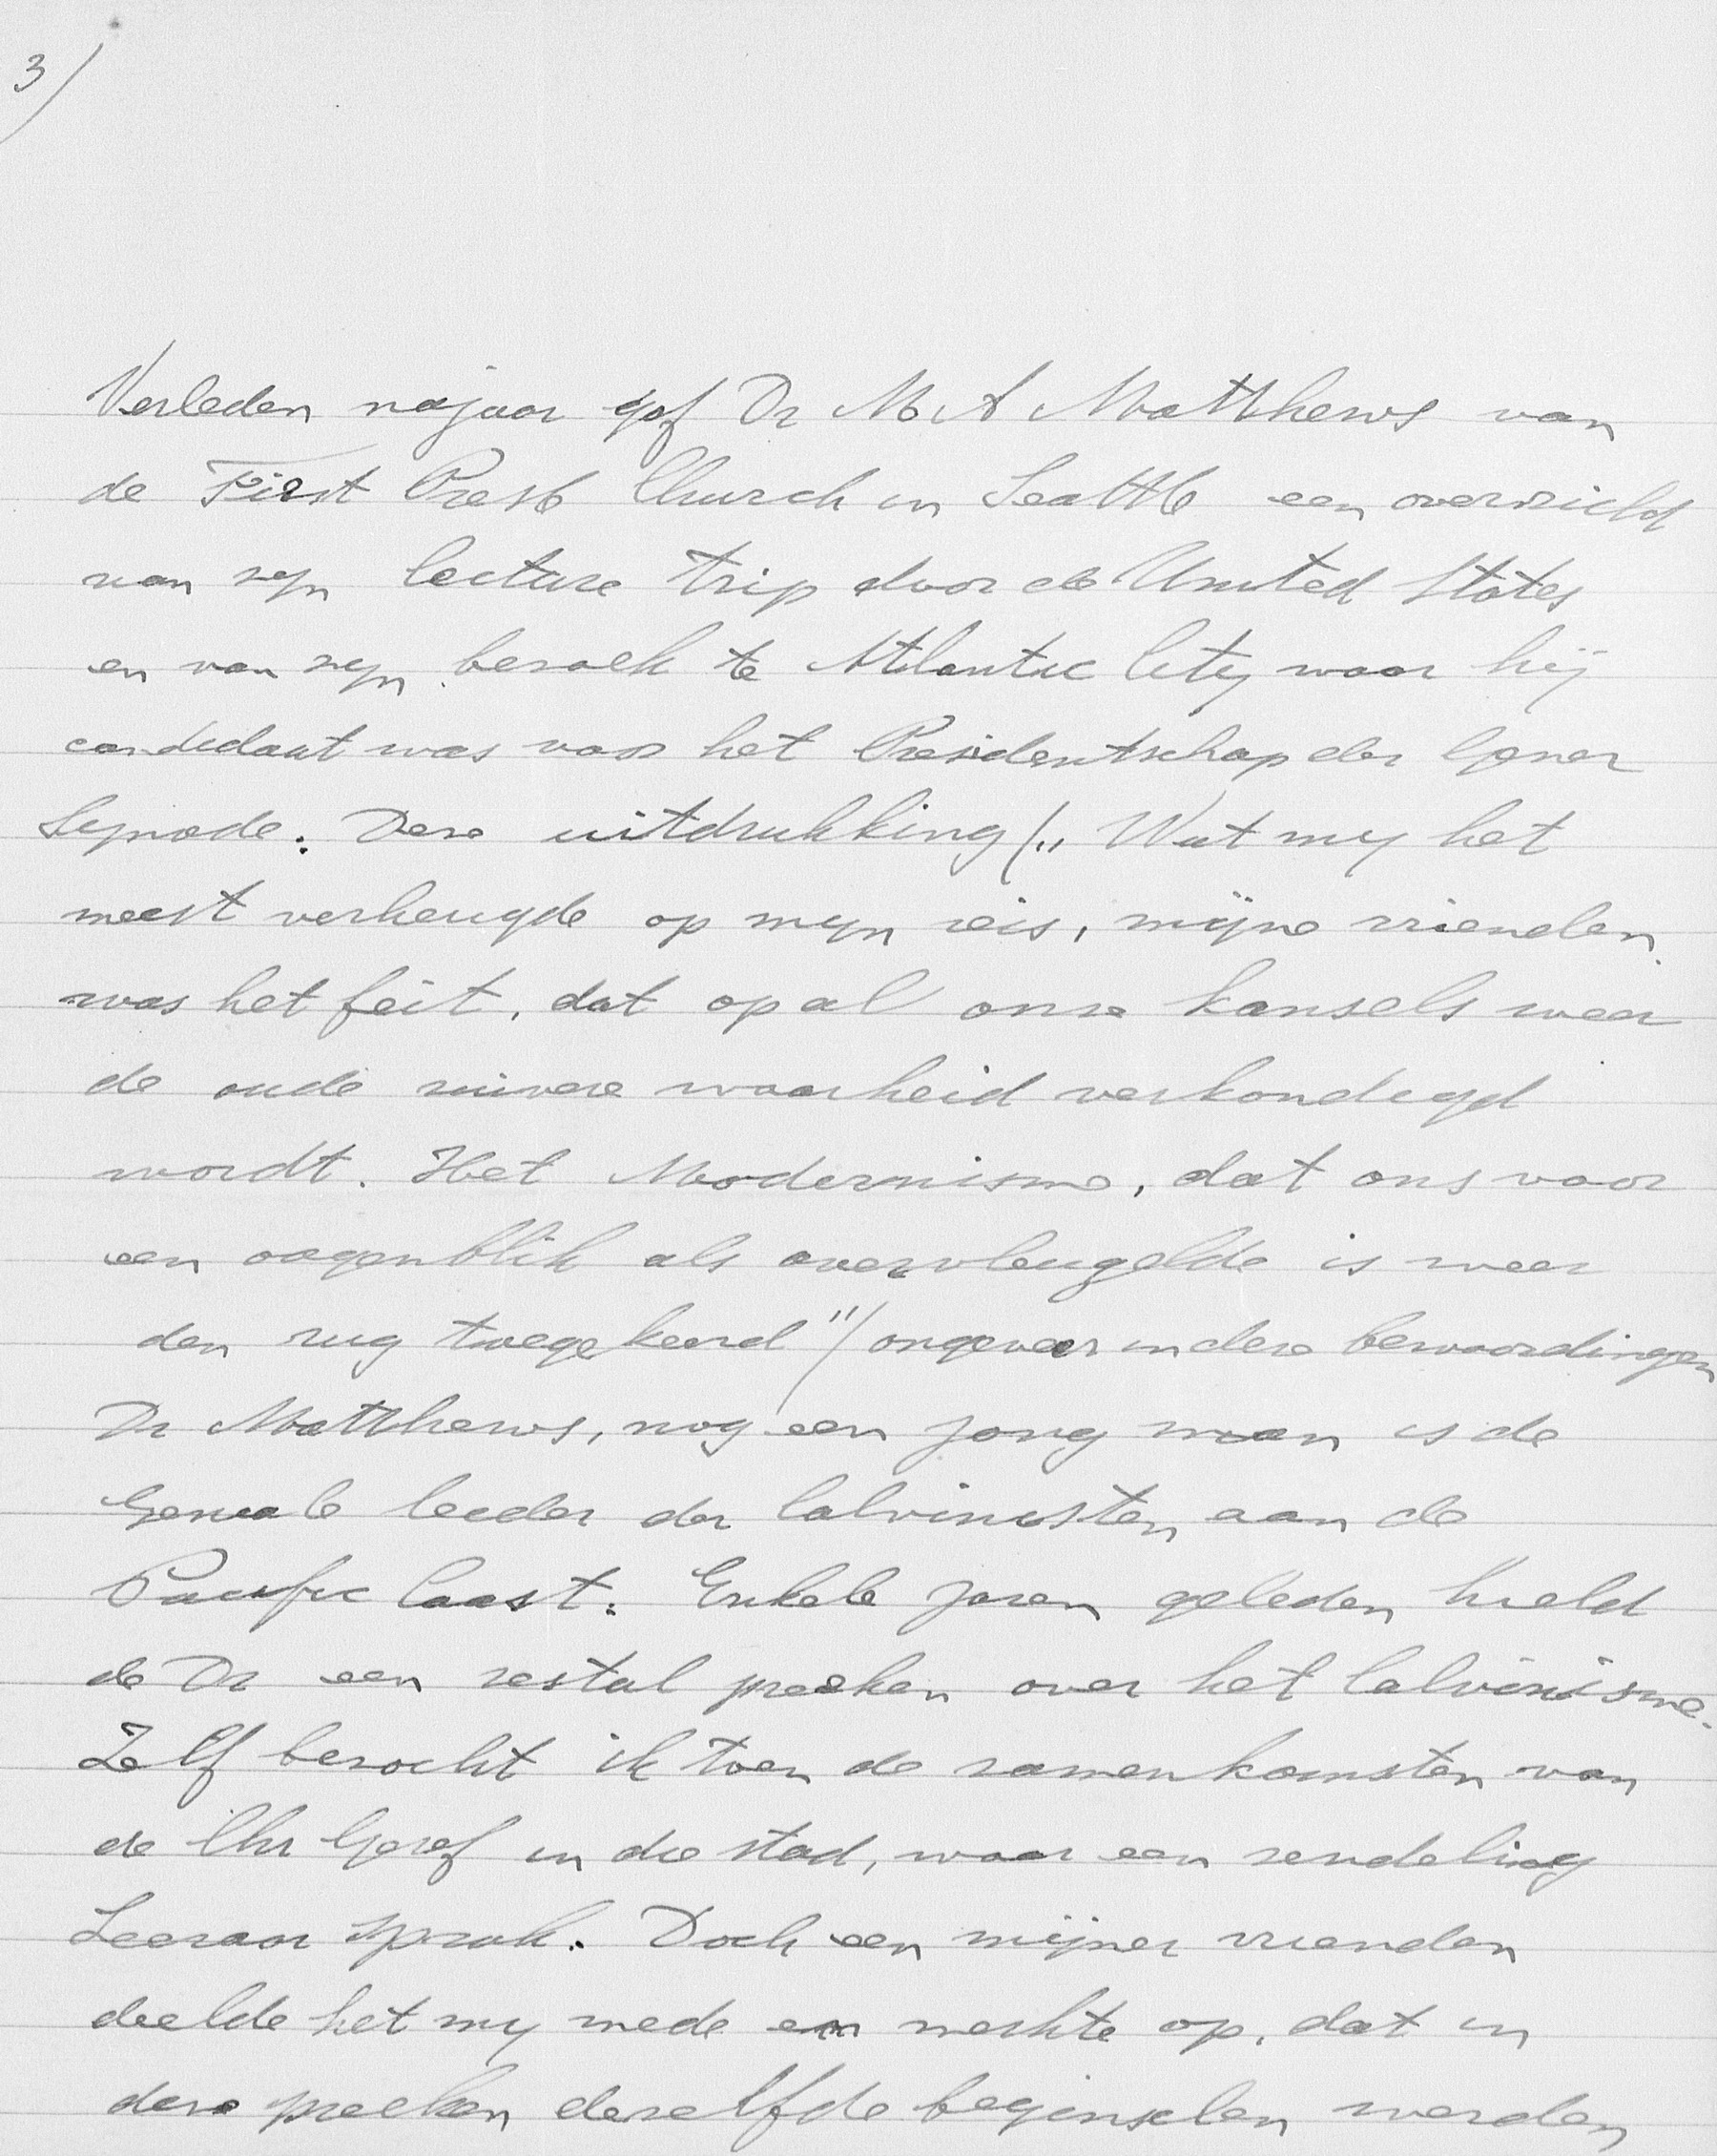 3)
Verleden najaar gaf Dr M A Matthews van
de First Presb Church in Seattle een overzicht
van zyn lecture trip door de United States
en van zyn bezoek te Atlantic City waar hij
candidaat was voor het Presidentschap der Gener
Synode. Deze uitdrukking („ Wat my het
meest verheugde op myn reis, mijne vrienden
was het feit, dat op al onze kansels weer
de oude zuivere waarheid verkondigd
wordt. Het Modernisme, dat ons voor
een oogenblik als overvleugelde is weer
den rug toegekeerd"/ ongeveer in deze bewoordingen
Dr Matthews, nog een jong man is de
Geniale leider der Calvinisten aan de
Pacific Coast. Enkele jaren geleden hield
de Dr een zestal preeken over het Calvinisme.
Zelf bezocht ik toen de zamenkomsten van
de Chr Geref in die stad, waar een zendeling
Leeraar sprak. Doch een mijner vrienden
deelde het my mede en merkte op, dat in
deze preeken dezelfde beginselen werden